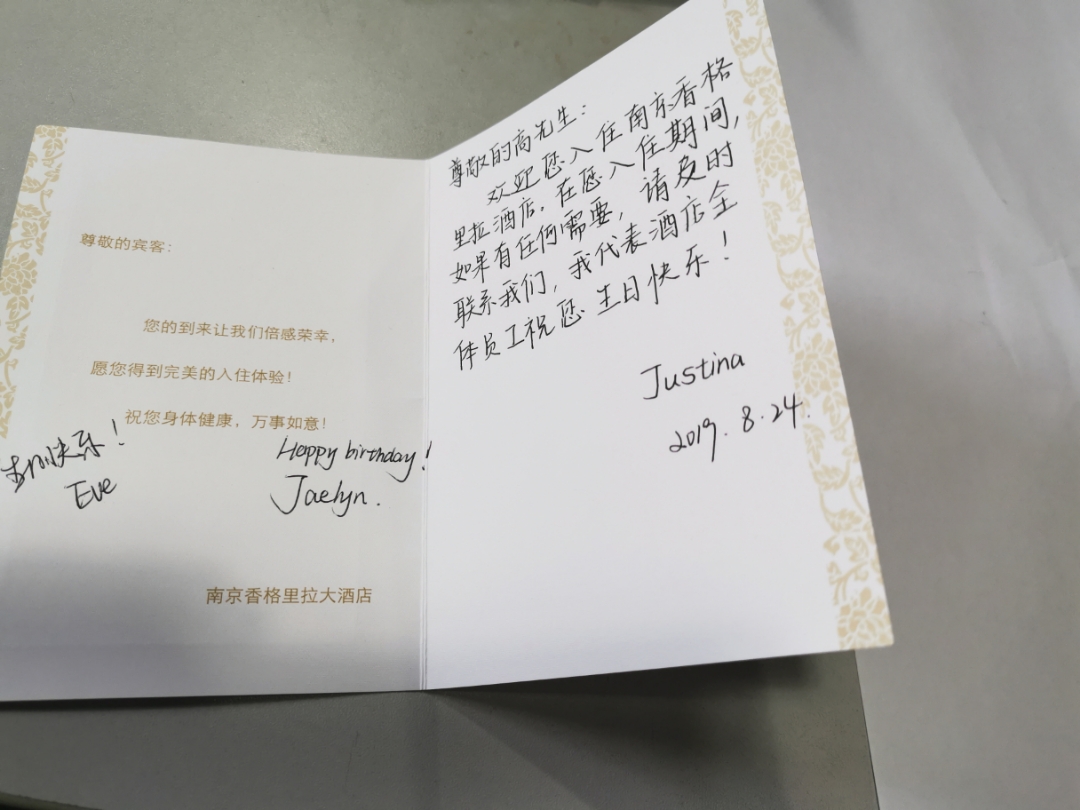 尊敬的宾客:
您的到来让我们倍感荣幸,
愿您得到完美的入住体验!
祝您身体健康, 万事如意!
生日快乐!
Eve
Happy birthday!
Jaelyn.
南京香格里拉大酒店
尊敬的高先生:
欢迎您入住南京香格
里拉酒店. 在您入住期间,
如果有任何需要, 请及时
联系我们, 我代表酒店全
体员工祝您 生日快乐!
Justina
2019. 8. 24.